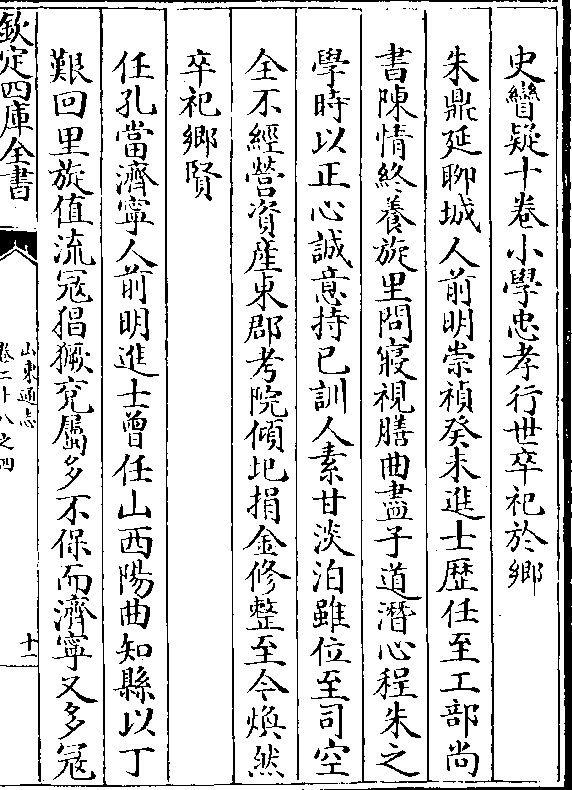 史辯疑十卷小學忠孝行世卒祀於鄉
朱鼎延聊城人前明崇禎癸未進士歴任至工部尚
書陳情終養旋里問寢視膳曲盡子道潛心程朱之
學時以正心誠意持已訓人素甘淡泊雖位至司空
全不經營資産東郡考院傾圯捐金修整至今煥然
卒祀鄉賢
任孔當濟寧人前明進士曾任山西陽曲知縣以丁
艱回里旋值流冦猖獗兖屬多不保而濟寧又多冦
欽定四庫全書
山東通志
卷二十八之四
十一